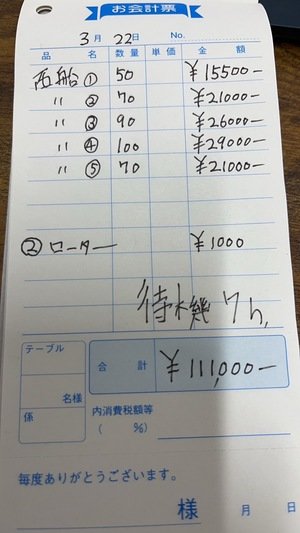 お会計票
3月 22日 No.
品名 数量 単価 金額
西船① 50 ¥15500-
〃 ② 70 ¥21000-
〃 ③ 90 ¥26000-
〃 ④ 100 ¥29000-
〃 ⑤ 70 ¥21000-
② ローター ¥1000
待機 7h,
テーブル 合計 ¥111,000-
名様
係 内消費税額等
( %)
毎度ありがとうございます。
様 月 日